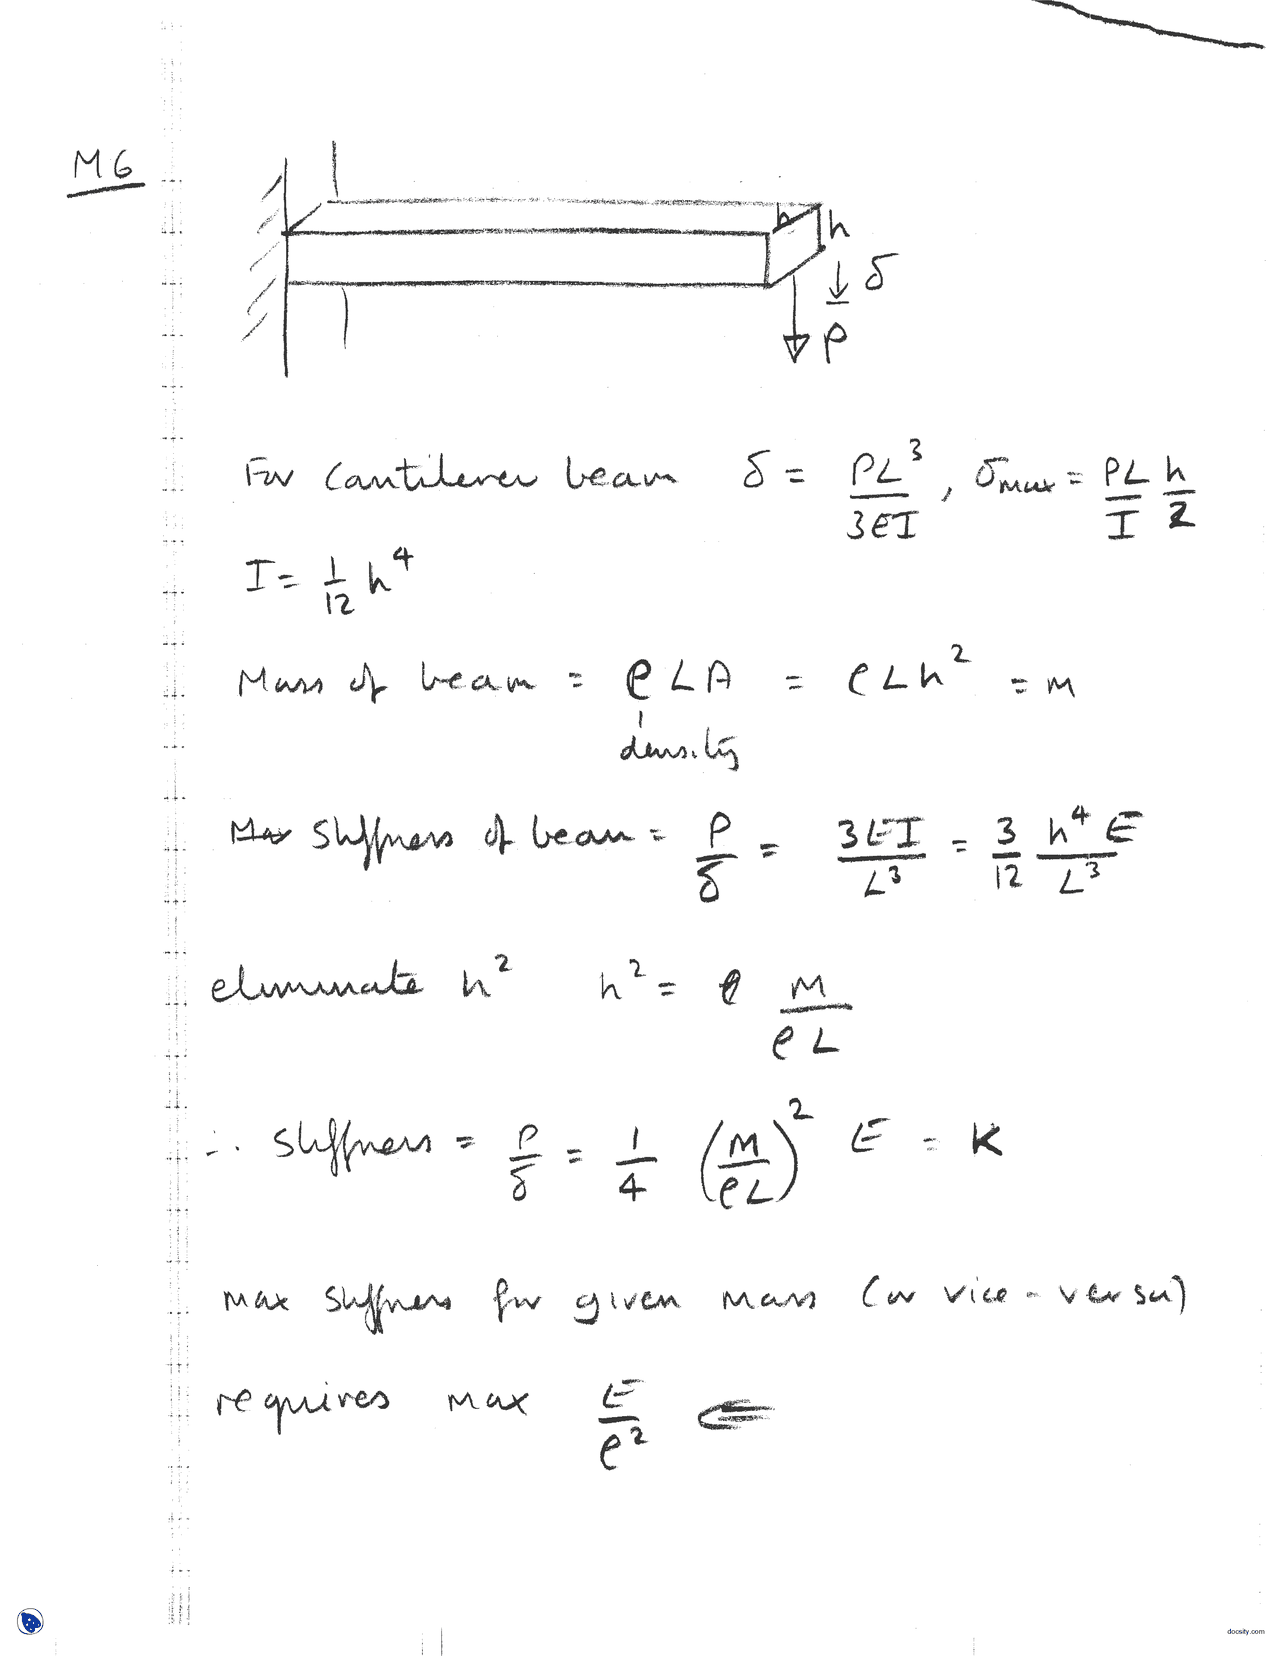 M6
h h
δ
P
For Cantilever beam δ = PL³/3EI , σmax = PL/I h/2
I = 1/12 h⁴
Mass of beam = ρLA = ρLh² = M
density
Stiffness of beam = P/δ = 3EI/L³ = 3/12 h⁴E/L³
eliminate h² h² = M/ρL
∴ Stiffness = P/δ = 1/4 (M/ρL)² E = K
max stiffness for given mass (or vice-versa)
requires max E/ρ² ⇐
docsity.com